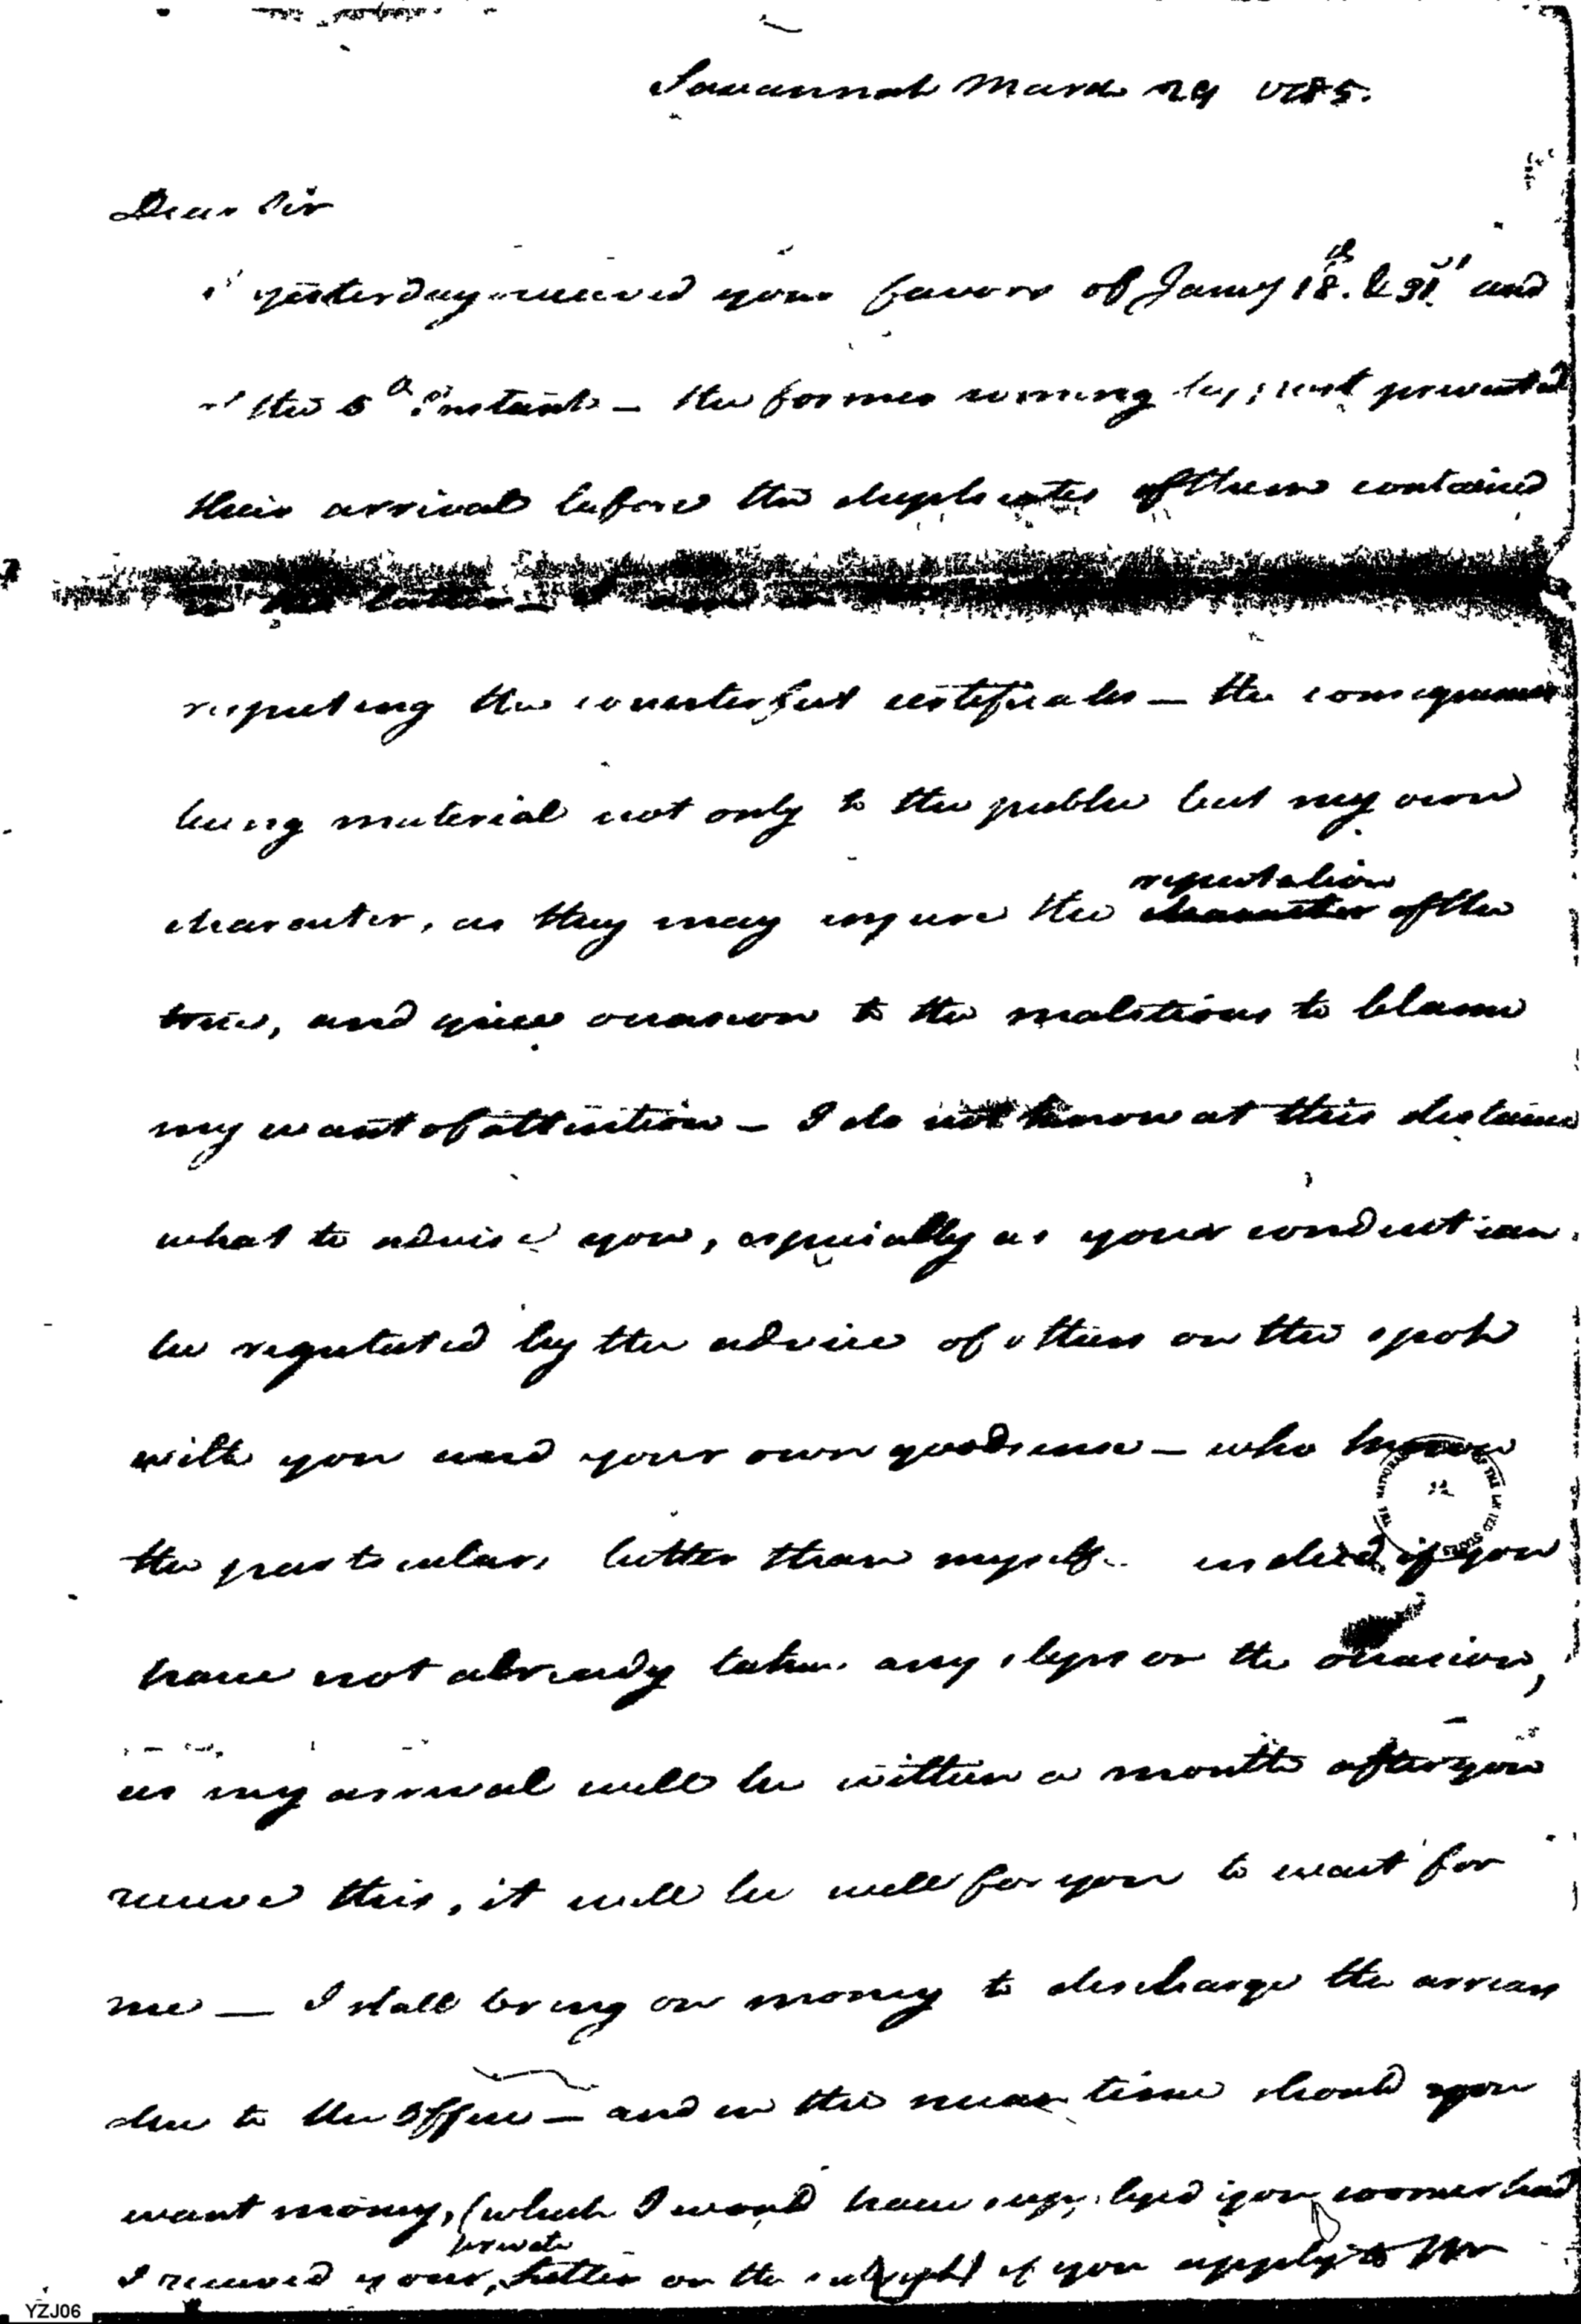 Savannah March 29 1785.
Dear Sir
I yesterday received your favors of Jany 18th. & 31st and
of the 5th Instant — the former coming by post prevented
their arrival before the duplicates of them contained
in the latter — I am
respecting the counterfeit certificates — the consequences
being material not only to the public but my own
character, as they may injure the reputation of the
true, and give occasion to the malitious to blame
my want of attention — I do not know at this distance
what to advise you, especially as your conduct can
be regulated by the advice of others on the spot
with you and your own good sense — who know
the particulars better than myself. indeed if you
have not already taken any steps on the occasion,
as my arrival will be within a month after you
receive this, it will be well for you to wait for
me — I shall bring on money to discharge the arrears
due to the office — and in the mean time should you
want money, (which I would have supplyed you sooner had
I received your private letter on the subject) if you apply to Mr
YZJ06